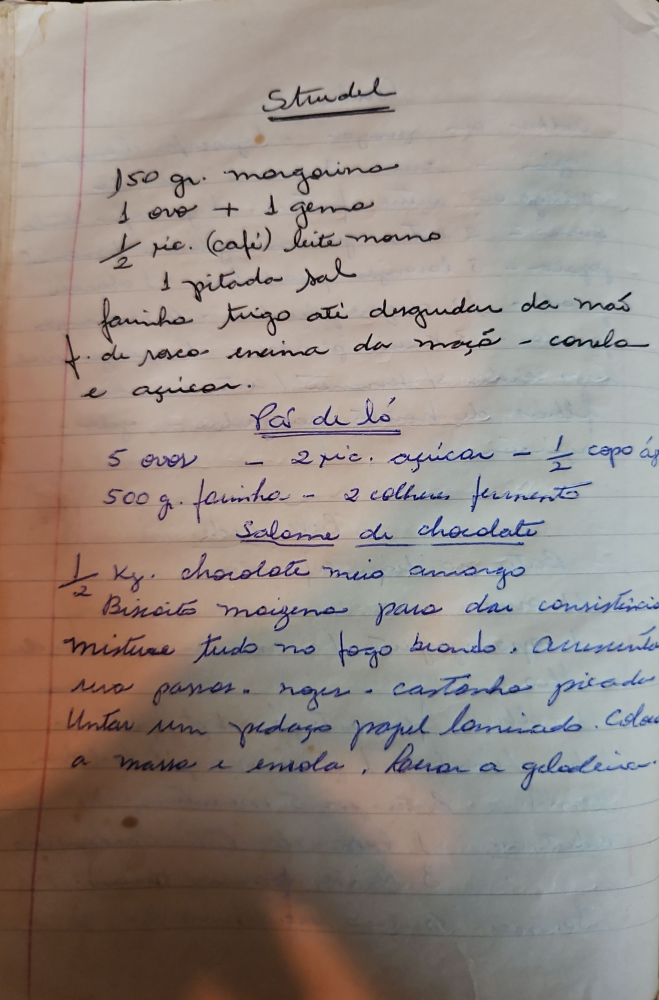 Strudel
150 gr. margarina
1 ovo + 1 gema
1/2 xic. (café) leite morno
1 pitada sal
farinha trigo até desgrudar da mão
f. de rosca encima da maçã - canela
e açúcar.
Pão de ló
5 ovos - 2 xic. açúcar - 1/2 copo ág
500 g. farinha - 2 colheres fermento
Salame de chocolate
1/2 Kg. chocolate meio amargo
Biscoito maizena para dar consistência
misture tudo no fogo brando.
uva passas. nozes. castanha picada
Untar um pedaço papel laminado. Coloca
a massa e enrola. Levar a geladeira.